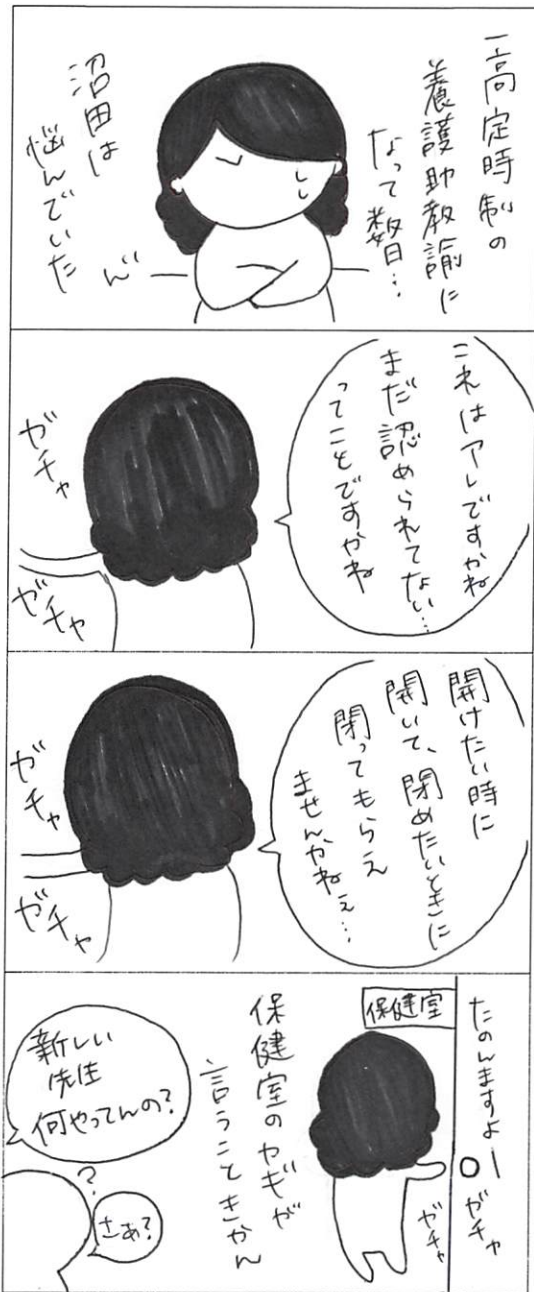 一高定時制の
養護助教諭に
なって数日…
沼田は
悩んでいた
ん゛
これはアレですかね
まだ認められてない…
ってことですかね
ガチャ
ガチャ
開けたい時に
開いて、閉めたいときに
閉ってもらえ
ませんかねぇ…
ガチャ
ガチャ
たのんますよー
ガチャ
ガチャ
保健室
保健室のカギが
言うこときかん
新しい
先生
何やってんの?
?
さぁ?